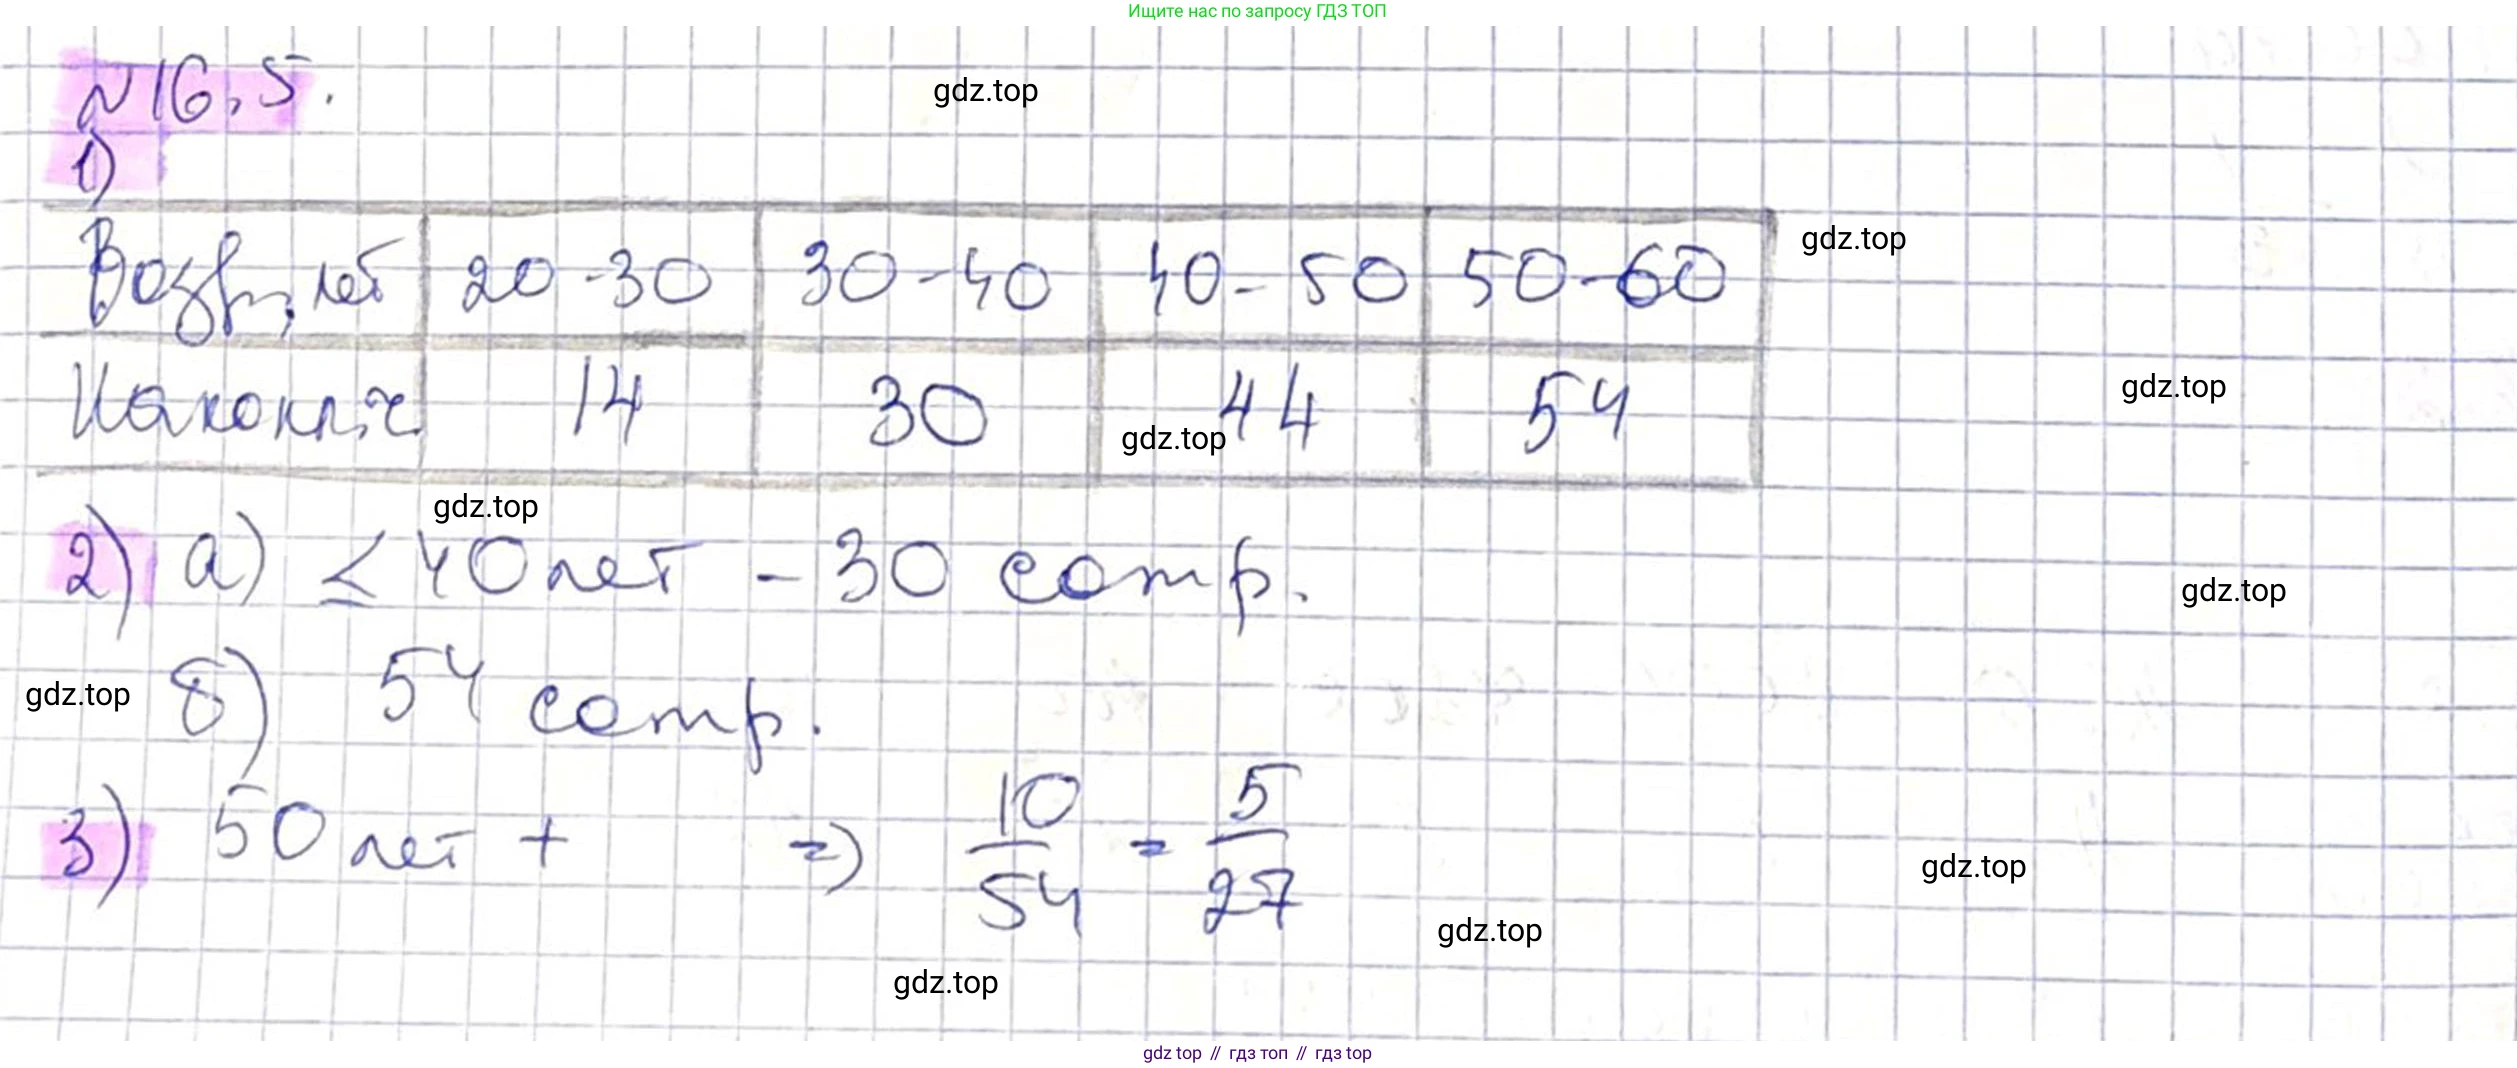 Ищите нас по запросу ГДЗ ТОП
№16.5.
gdz.top
1)
Возр., лет 20-30 30-40 40-50 50-60
gdz.top
gdz.top
Накопл.ч. 14 30 44 54
gdz.top
gdz.top
2) а) ≤ 40 лет - 30 сотр.
gdz.top
gdz.top
б) 54 сотр.
3) 50 лет + => 10/54 = 5/27
gdz.top
gdz.top
gdz.top
gdz top // гдз топ // гдз top